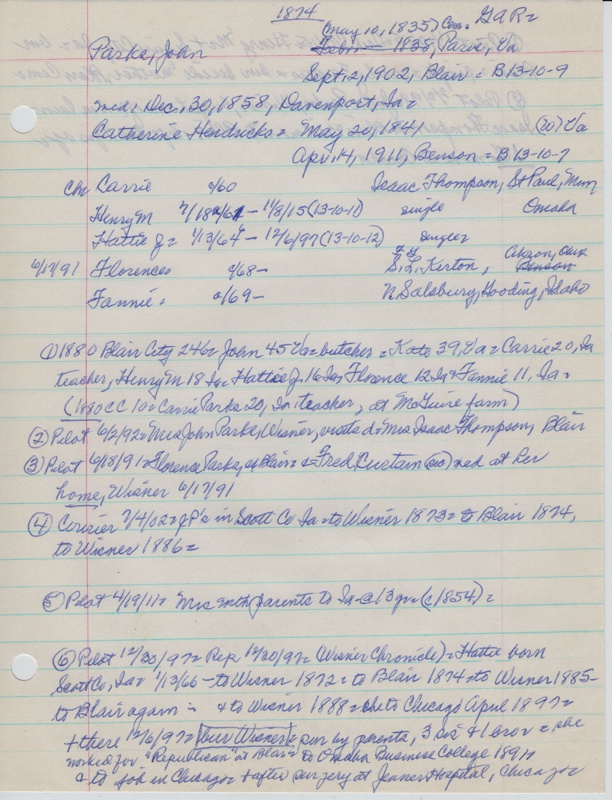 1874
(May 10, 1835) Com. G.A.R=
Parks, John 1838, Paris, Va
Sept, 12, 1902, Blair = B 13-10-9
med: Dec, 30, 1858, Davenport, Ia=
Catherine Hendricks = May 20, 1841 (20) Va
Apr, 14, 1911, Benson = B 13-10-7
Ch: Carrie c/60 Isaac Thompson, St Paul, Minn
Henry M - 1/8/15 (13-10-11) single Omaha
Hattie J = 1/13/64 - 12/6/97 (13-10-12) single=
6/17/91 Florence= c/68- Kerton, Akron, Benson
Fannie = c/69- N. Salsbury, Gooding, Idaho
① 1880 Blair City 246= John 45 Va= butcher = Kate 39, Va = Carrie 20, Ia
teacher, Henry M 18 Ia= Hattie J. 16 Ia, Florence 12 Ia + Fannie 11, Ia=
(1880 CC 10= Carrie Parks 20, Ia teacher, at McGuire farm)
② Pilot 6/2/92= Mrs John Parks, Wisner, visits d= Mrs Isaac Thompson, Blair
③ Pilot 6/18/91= Florence Parks, of Blair= & Fred Curtain (so) med at her
home, Wisner 6/17/91
④ Courier 7/4/02= in Scott Co Ia= to Wisner 1873= to Blair 1874,
to Wisner 1886=
⑤ Pilot 4/19/11= Mrs with parents to Ia @ 13 yr= (c 1854)=
⑥ Pilot 12/30/97= Rep 12/20/97= (Wisner Chronicle)= Hattie born
Scott Co, Ia= 1/13/66 - to Wisner 1872= to Blair 1874= to Wisner 1885-
to Blair again = & to Wisner 1888= to Chicago April 1897=
+ there 12/6/97= bur Wisner sur by parents, 3 sis & 1 bro = she
worked for "Republican" at Blair= to Omaha Business College
& to job in Chicago= + after surgery at Jenner Hospital, Chicago=